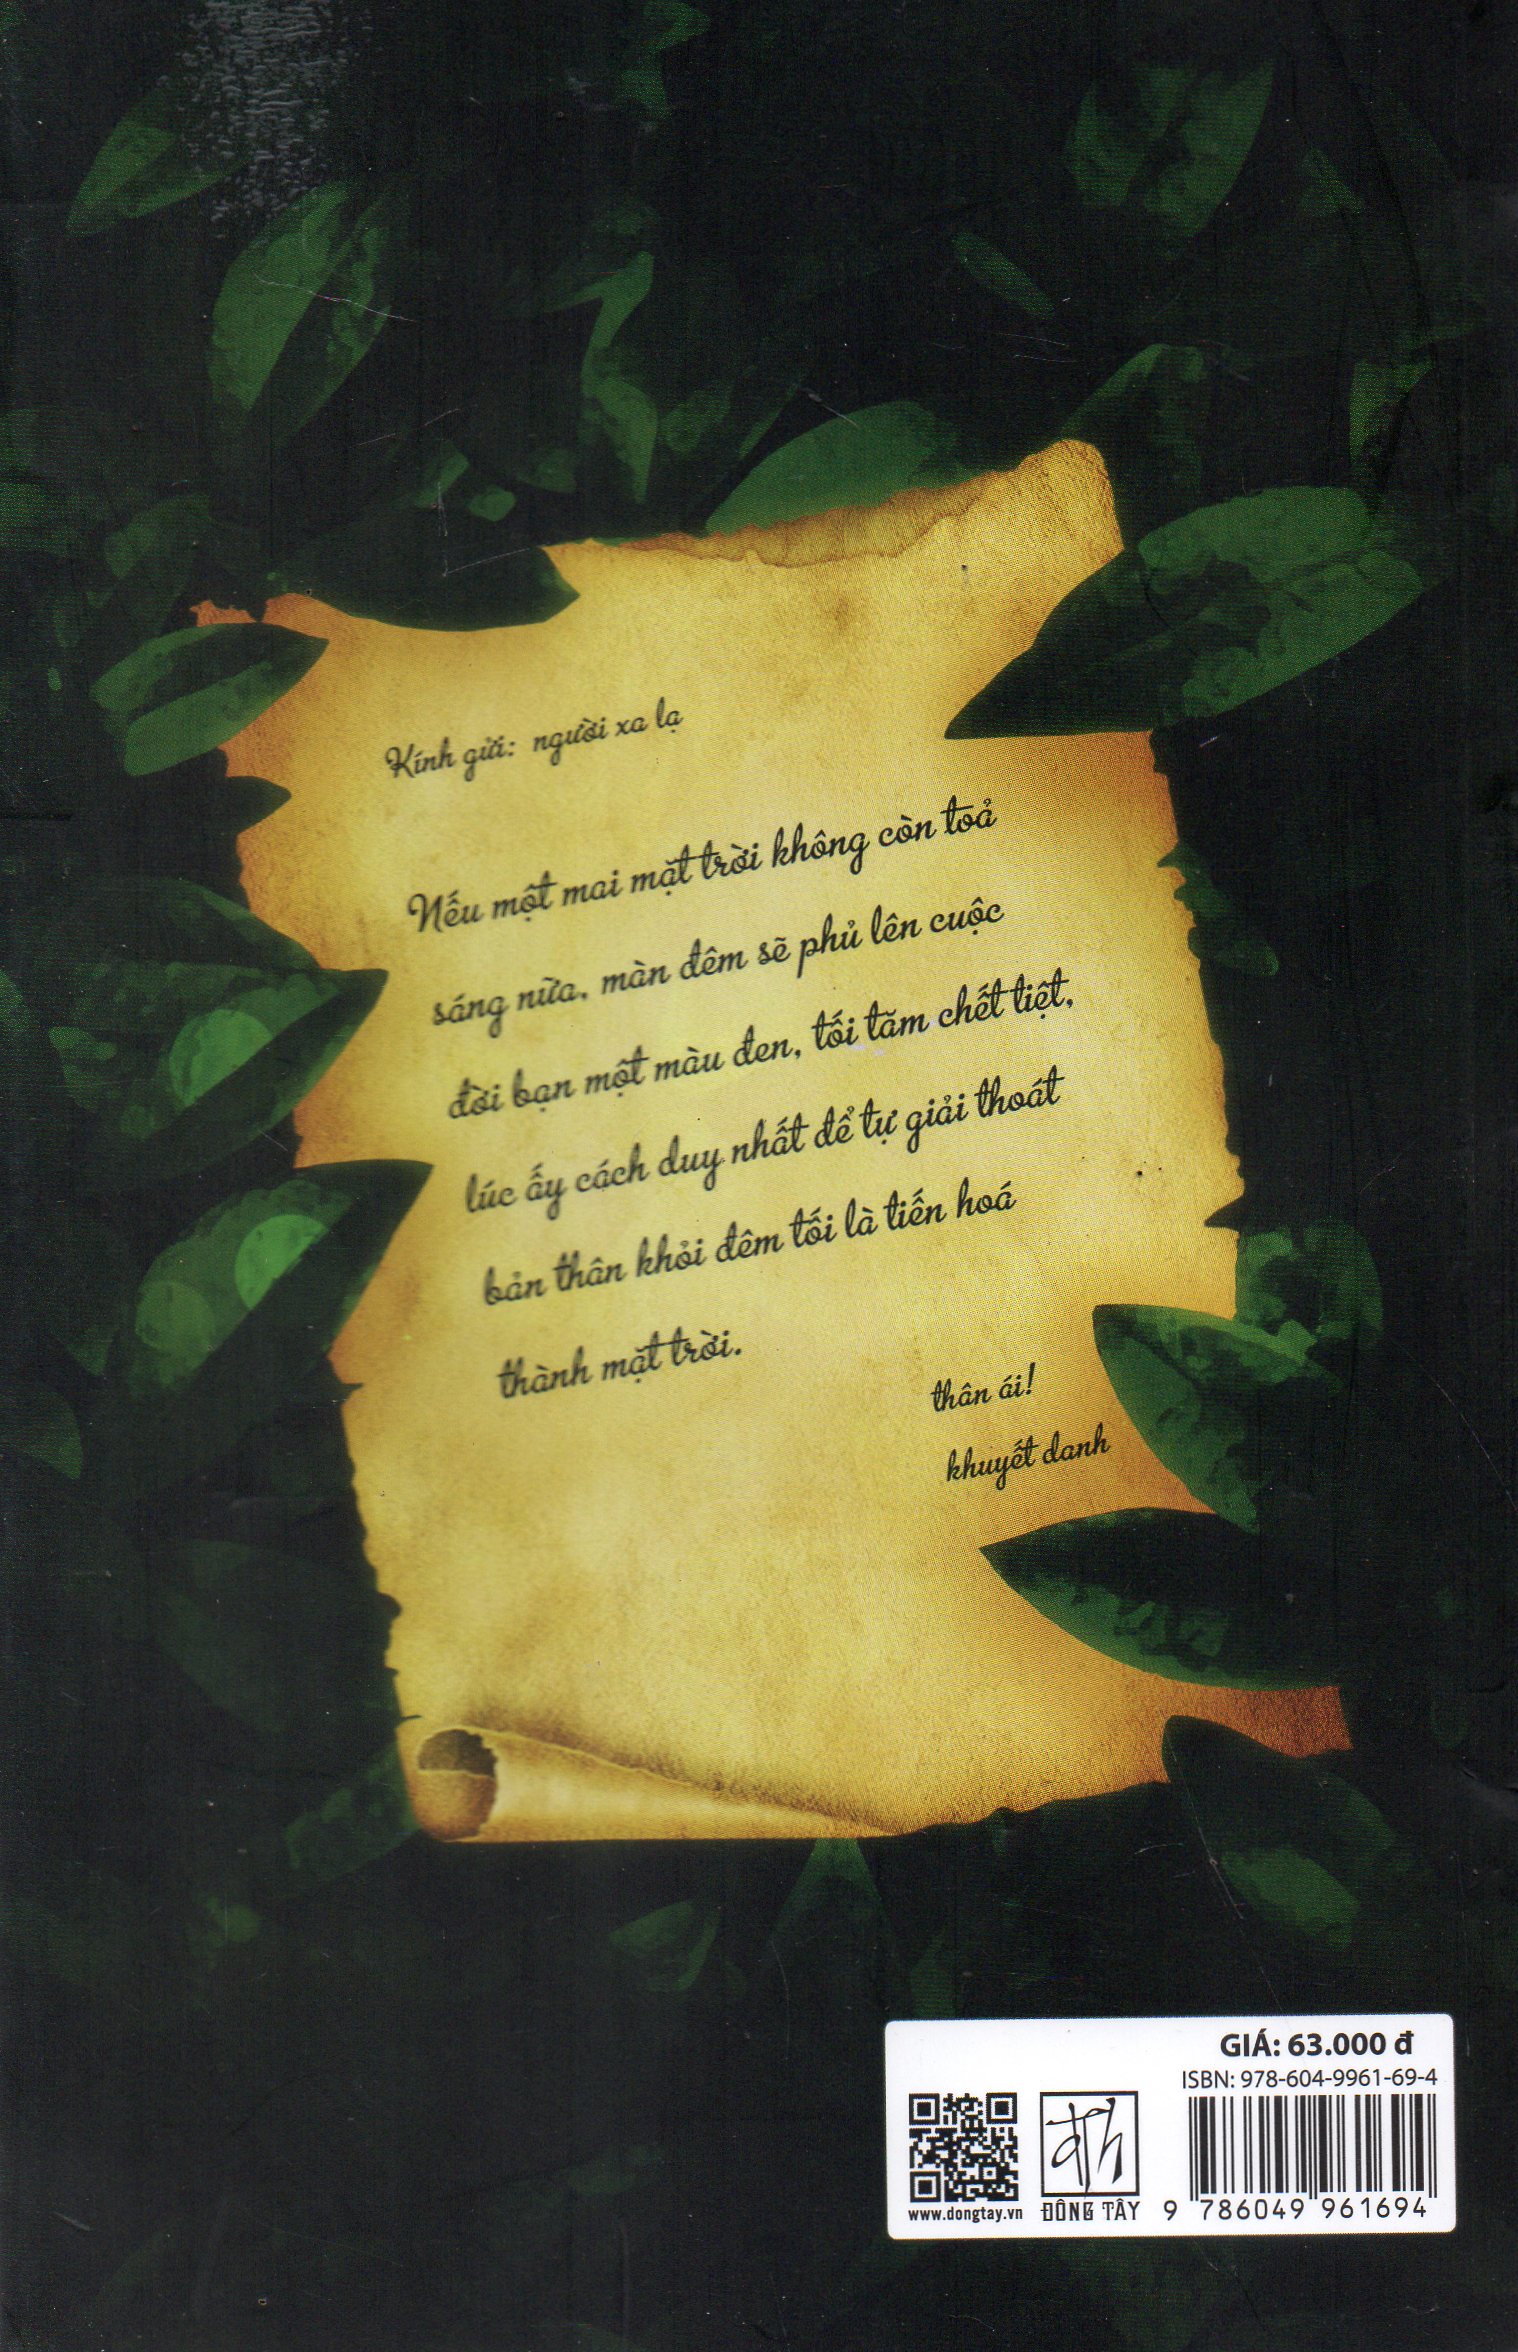 Kính gửi: người xa lạ
Nếu một mai mặt trời không còn toả
sáng nữa, màn đêm sẽ phủ lên cuộc
đời bạn một màu đen, tối tăm chết tiệt,
lúc ấy cách duy nhất để tự giải thoát
bản thân khỏi đêm tối là tiến hoá
thành mặt trời.
thân ái!
khuyết danh
GIÁ: 63.000 đ
ISBN: 978-604-9961-69-4
www.dongtay.vn
ĐÔNG TÂY
9 786049 961694